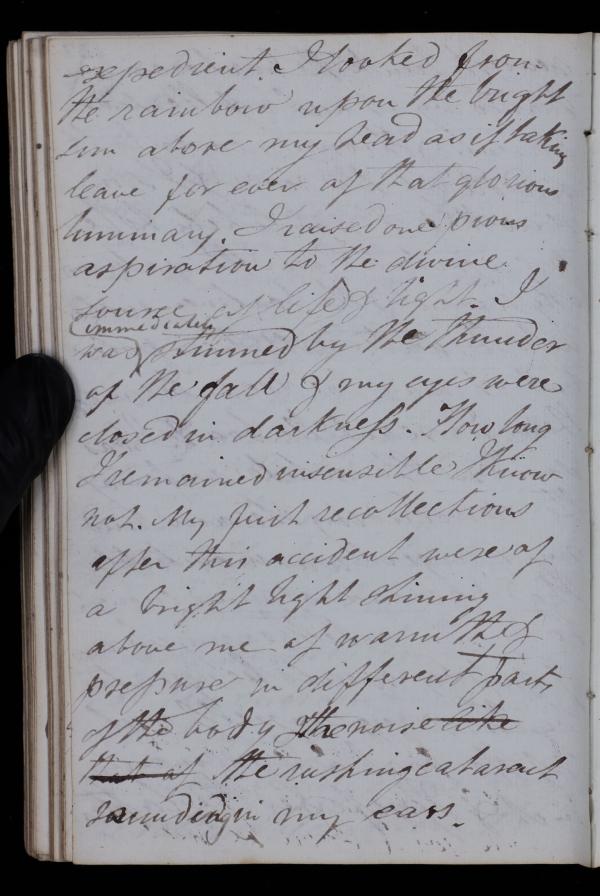 expedient. I looked from
the rainbow upon the bright
sun above my head as if taking
leave for ever of that glorious
luminary. I raised one pious
aspiration to the divine
source of life & light. I
immediately
was stunned by the thunder
of the fall & my eyes were
closed in darkness. How long
I remained insensible I know
not. My first recollections
after this accident were of
a bright light shining
above me of warmth &
pressure in different parts
of the body & the noise like
that of the rushing cataract
sounding in my ears.